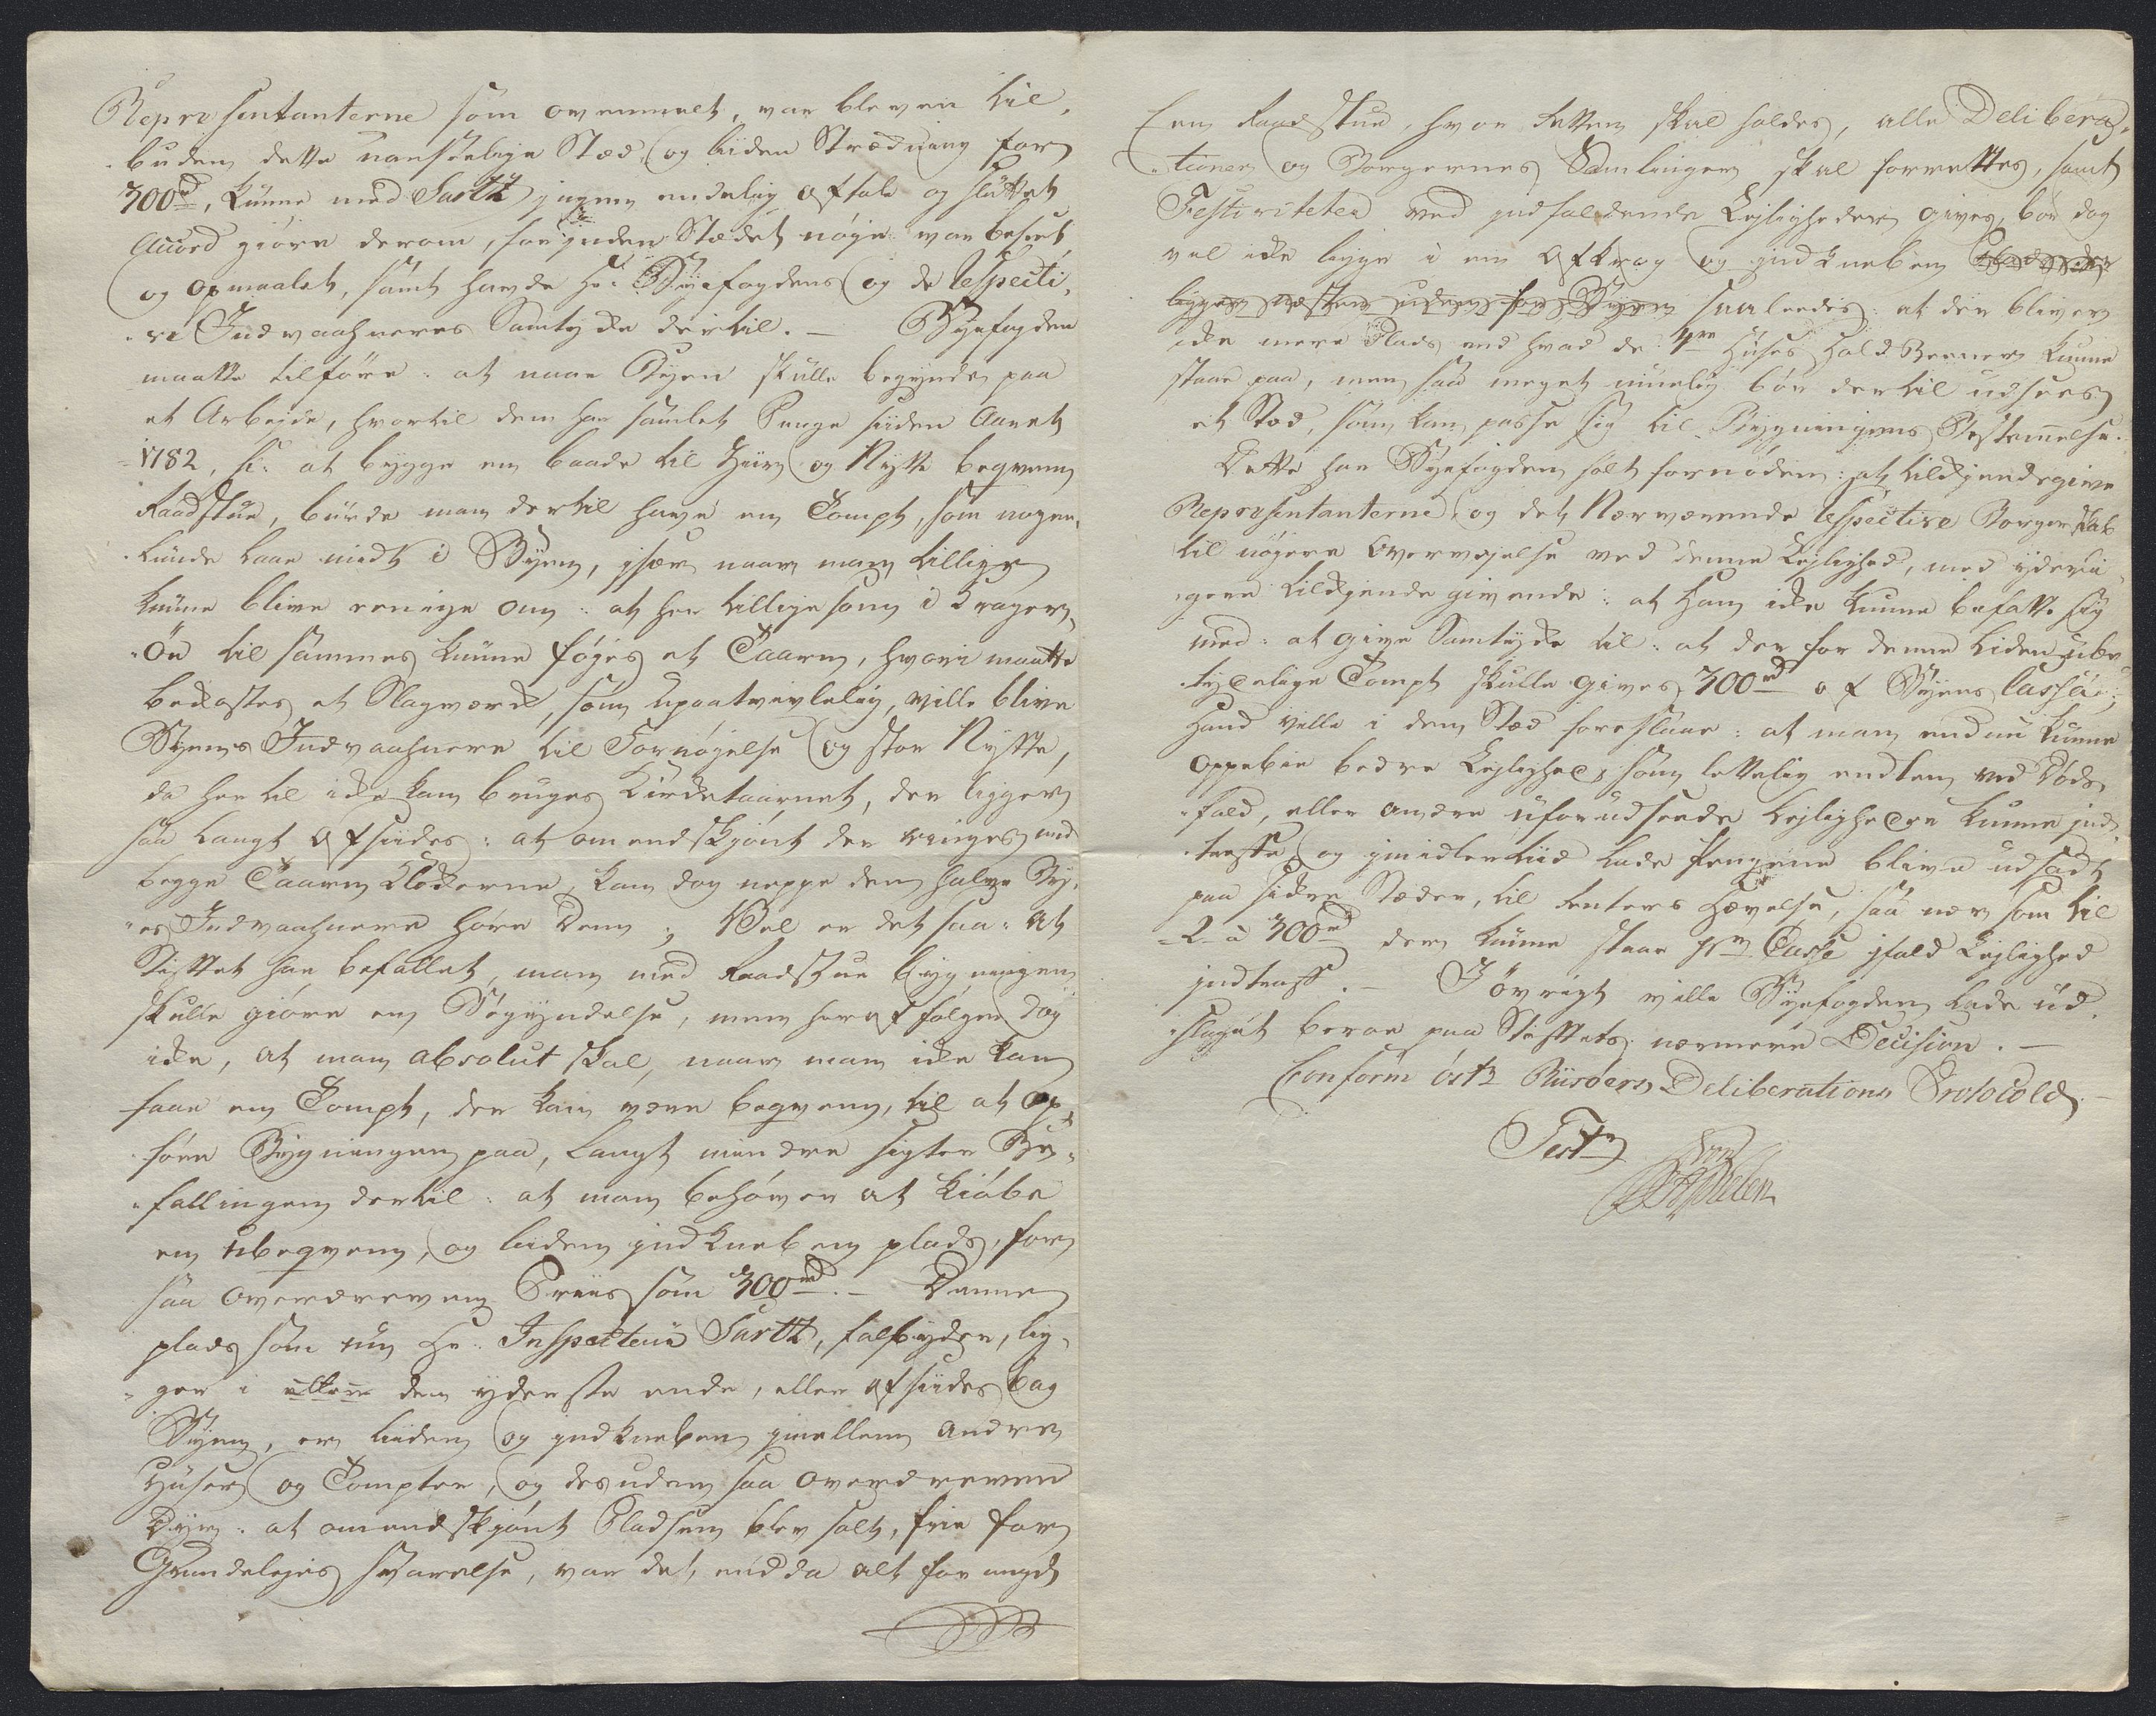 Repræsentanterne som ovenmelt, var bleven til,
buden dette vanskelige Stæd, og liden Strækning for
300rd, kunne med Sartz ingen endelig Aftale og sluttet
Accord giöre derom, forinden Stædet nöye var beseet
og opmaalet, samt havde Hr. Byefogdens og de respecti,
ve Indvaahneres Samtykke dertil. — Byefogden
maatte tilföre: at naar Byen skulle begynde paa
et Arbeide, hvortil dem har samlet Penge siden Aaret
1782, s: at bygge en baade til Ziir og Nytte beqvem
Raadstue, burde man dertil have en Tompt, som nogen,
lunde laae midt i Byen, især naar man tillige
kunne blive eenige om: at her tillige som i Krager,
Öe til sammes kunne föyes et Taarn, hvori maatte
bekostes et Slagværk, som upaatvivlelig, ville blive
Byens Indvaahnere til Fornöyelse og stor Nytte,
da her til ikke kan bruges Kirketaarnet, der ligger
saa langt afsides: at omendskjönt der ringes med
begge Taarn Klokkerne, kan dog neppe den halve By,
es Indvaahnere höre Dem; Vel er det saa: at
Stiftet har befallet, man med Raadstue Bygningen
skulle giöre en Begyndelse, men heraf fölger dog
ikke, at man absolut skal, naar man ikke kan
faae en Tompt, der kan være beqvem, til at op,
före Bygningen paa, langt mindre sigter Be,
fallingen dertil: at man behöver at kiöbe
en ubeqvem, og liden indkneben plads, for
saa overdreven Priis som 300rd. — Denne
plads som nu Hr. Inspecteur Sartz, falbyder, lig,
ger i den yderste ende, eller afsides bag
Byen, er liden og indkneben imellem andre
Huser og Tompter, og desuden saa overdreven
Dyr: at omendskjönt Pladsen blev solt, frie for
Grundeleyes Svarelse, var det endda alt for meget
Een Raadstue, hvor Retten skal holdes, alle Delibera,
tioner og Borgernes Samlinger skal forrettes, samt
Festiviteter ved indfaldende Leyligheder gives, bör dog
vel ikke ligge i en Afkrog og indkneben
ligger næsten uden for Byen saaledes: at der bliver
ikke mere Plads end hvad de 4re Huses Hold Beener kunne
staae paa, men saa meget muelig bör dertil udsees
et Stæd, som kan passe sig til Bygningens Bestemmelse.
Dette har Byefogden fölt fornöden: at tilkjendegive
Repræsentanterne, og det Nærværende respective Borgerskab
til nöyere Overveyelse ved denne Leylighed, med yderli,
gere tilkjende givende: at Han ikke kunne befatte sig
med: at give Samtykke til: at der for denne liden ube,
tydelige Tompt skulle gives 300rd af Byens Cassa;
Hand ville i dens Stæd foreslaae: at man endnu kunne
oppebie bedre Leylighed, som lettelig enten ved Döds,
fald, eller andre uforudseede Leyligheder kunne ind,
træffe, og imidlertiid lade Pengene blive udsadt
paa sikre Stæder, til Renters Hævelse, saa nær som til
2 à 300rd der kunne staae pr Casse ifald Leylighed
indtraff. — I övrigt ville Byefogden lade Ud,
slaget beroe paa Stiftets nærmere Decision. —
Conform Östr Riisöers Deliberations Protocold. —
Test